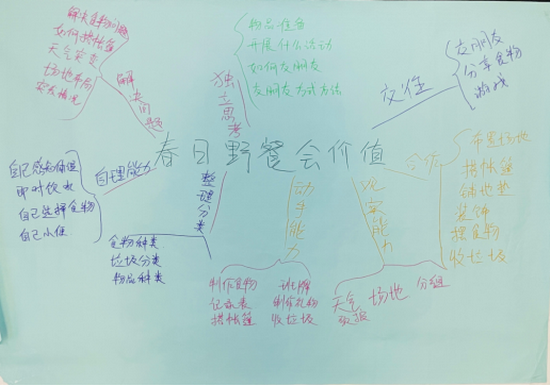 解决食物问题
如何搭帐篷
天气突变
场地布局
突发情况
解决问题
物品准备
开展什么活动
如何交朋友
交朋友方式方法
独立思考
交朋友
分享食物
游戏
交往
春日野餐会价值
自理能力
即时饮水
自己选择食物
自己小便
整理分类
食物种类
垃圾分类
物品种类
动手能力
制作食物
记录表
搭帐篷
班牌
制作礼物
收垃圾
观察能力
天气
场地
分组
合作
布置场地
搭帐篷
铺地垫
装饰
摆食物
收垃圾